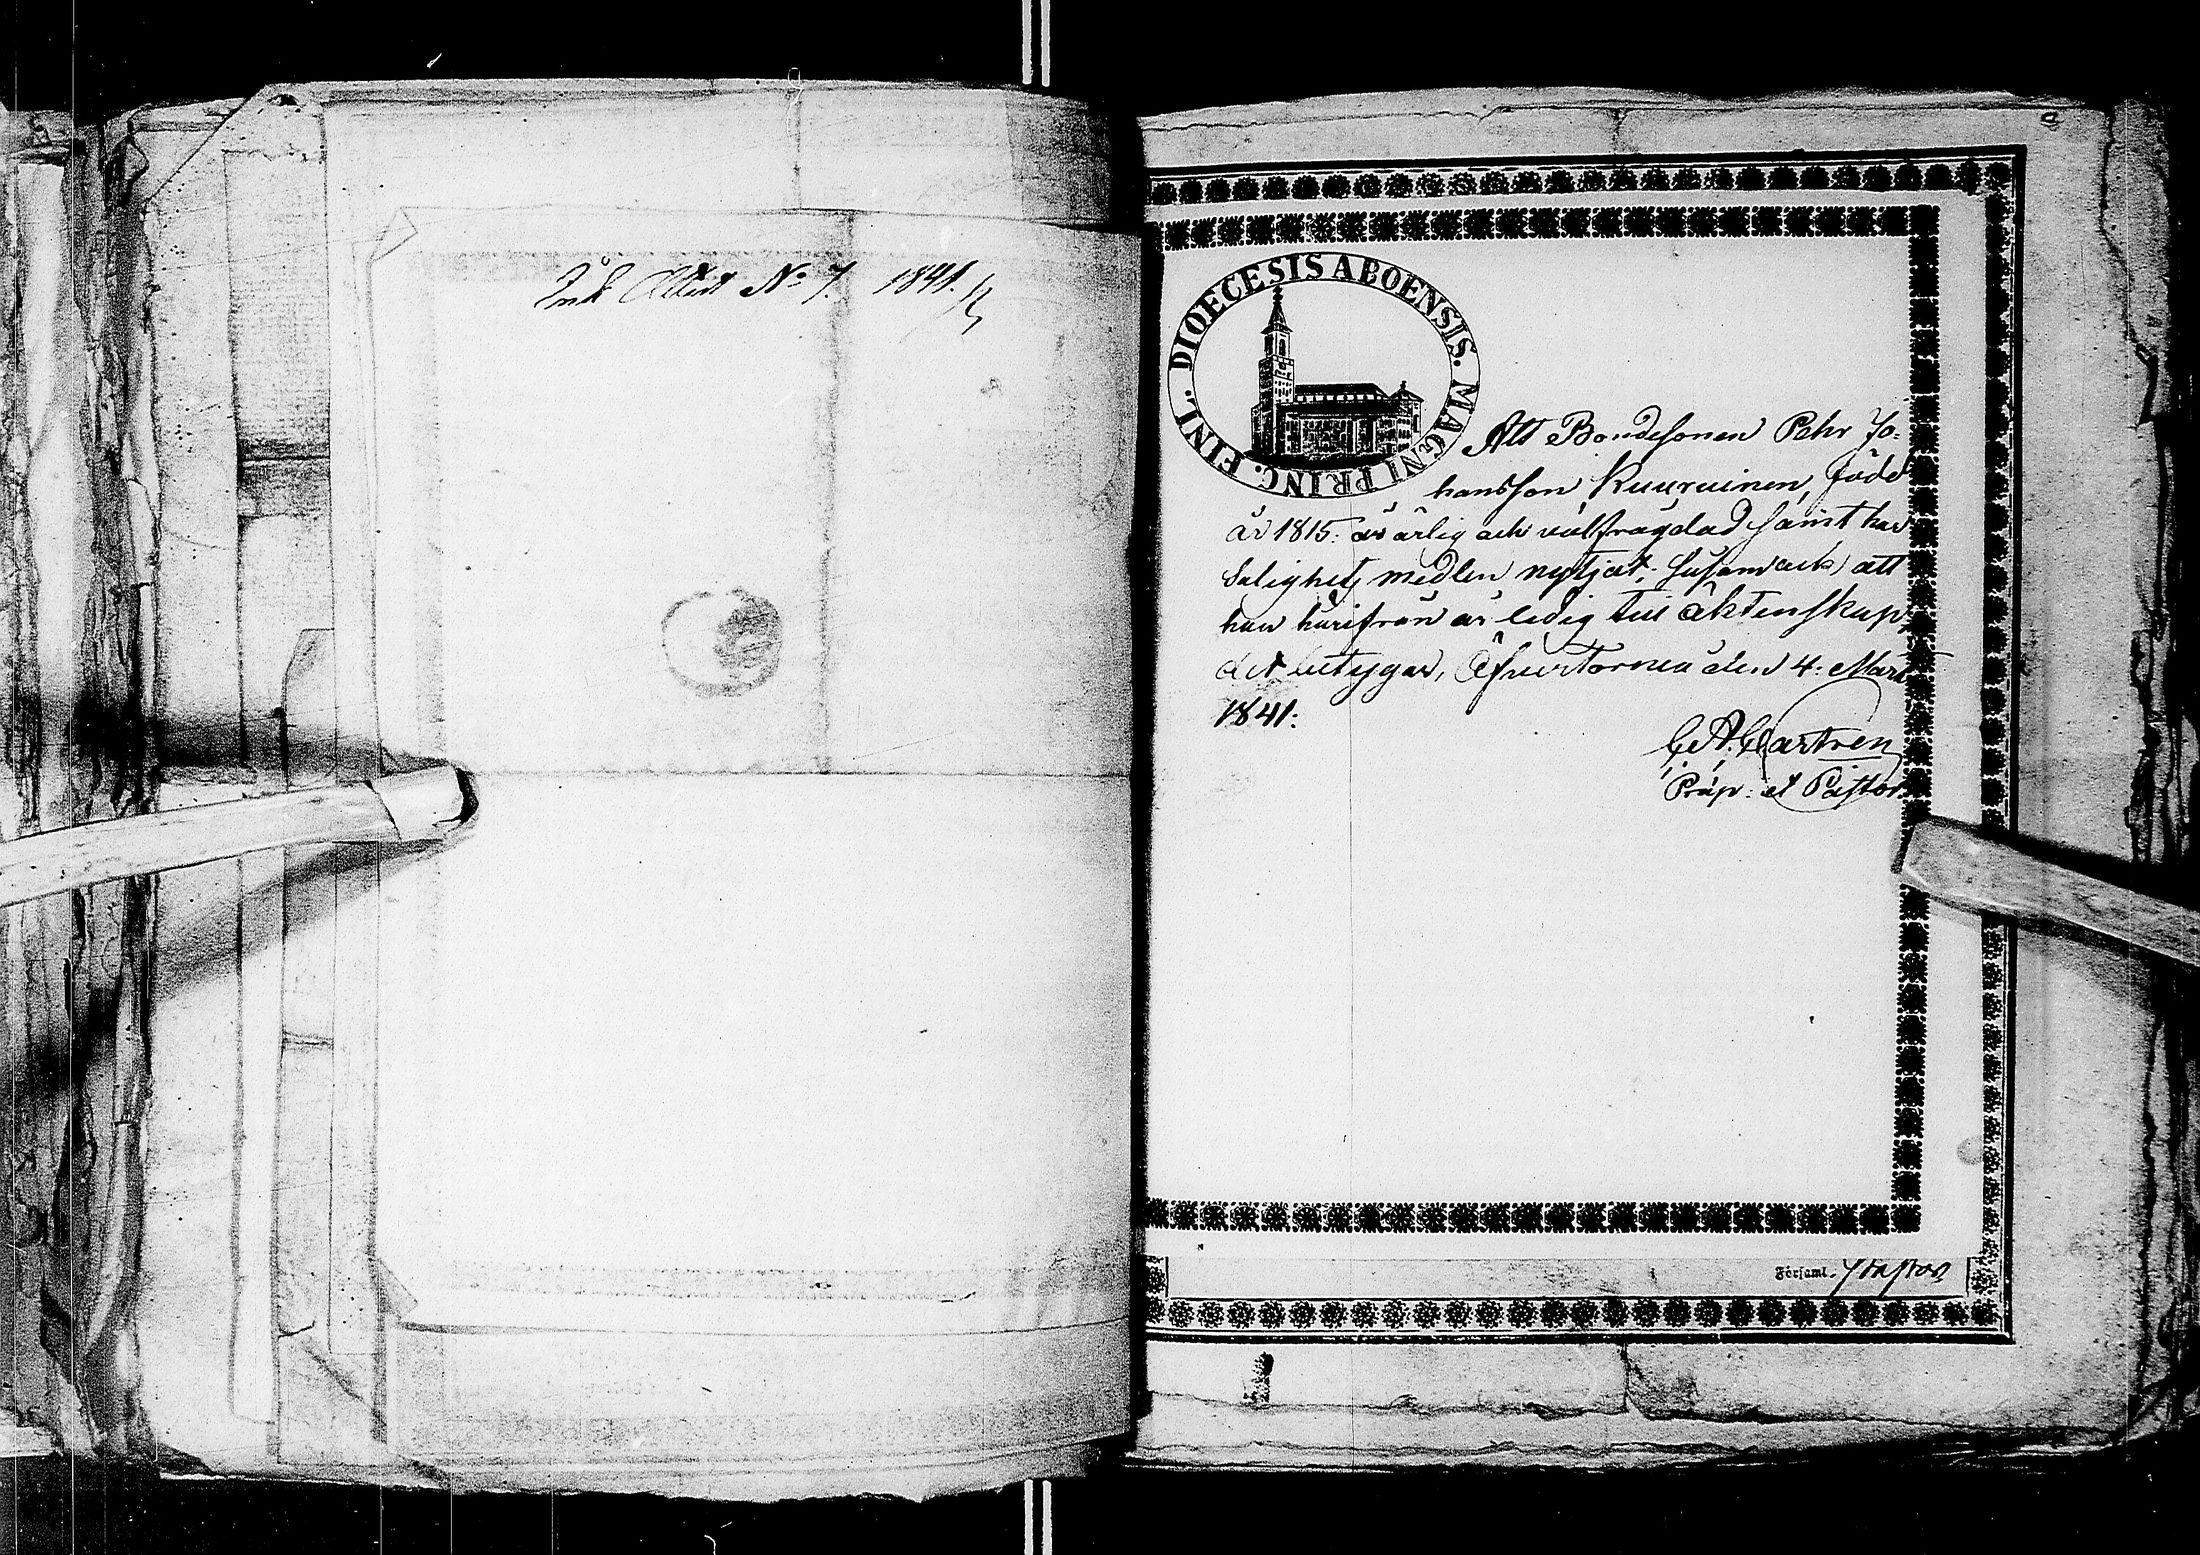 Ink Attest No 7. 1841.
DIOECESIS ABOENSIS. MAGNI PRINC. FINL.
Att Bondesonen Pehr Jo=
hansson Kuuruinen, född
år 1815: är ärlig och välfrägdad samt har
Salighets medlen nytjat; äfvensom att
han härifrån är ledig till äktenskap,
det betygar, Öfvertornea den 4: Mars
1841:
C. A. Castren
Præp: et Pastor
Församl.